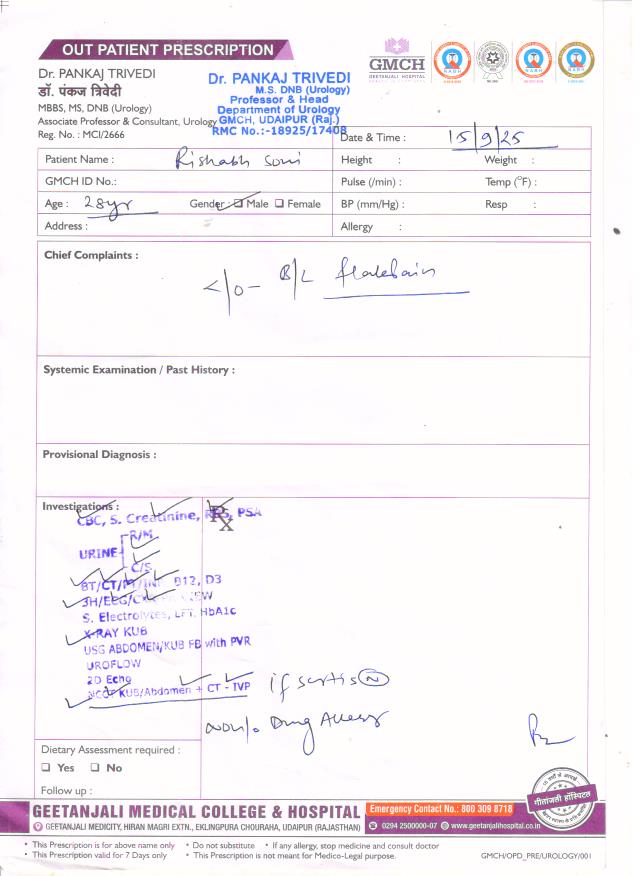 OUT PATIENT PRESCRIPTION
GMCH
GEETANJALI HOSPITAL
Dr. PANKAJ TRIVEDI
डॉ. पंकज त्रिवेदी
MBBS, MS, DNB (Urology)
Associate Professor & Consultant, Urology
Reg. No. : MCI/2666
Dr. PANKAJ TRIVEDI
M.S. DNB (Urology)
Professor & Head
Department of Urology
GMCH, UDAIPUR (Raj.)
RMC No.:-18925/17408
Date & Time : 15/9/25
Patient Name : Rishabh Soni
Height : Weight :
GMCH ID No.:
Pulse (/min) : Temp (°F) :
Age : 28yr Gender : Male Female
BP (mm/Hg) : Resp :
Address :
Allergy :
Chief Complaints :
C/O- B/L flank pain
Systemic Examination / Past History :
Provisional Diagnosis :
Investigations :
Rx
CBC, S. Creatinine, PSA
URINE R/M
C/S
BT/CT/PT/INR B12, D3
S. Electrolytes, LFT, HbA1c
X-RAY KUB
USG ABDOMEN/KUB FB with PVR
UROFLOW
2D Echo
NCCT KUB/Abdomen + CT - IVP if N
Drug Allergy
Dietary Assessment required :
Yes No
Follow up :
गीतांजली हॉस्पिटल
GEETANJALI MEDICAL COLLEGE & HOSPITAL
Emergency Contact No.: 800 309 8718
GEETANJALI MEDICITY, HIRAN MAGRI EXTN., EKLINGPURA CHOURAHA, UDAIPUR (RAJASTHAN)
0294 2500000-07 www.geetanjalihospital.co.in
• This Prescription is for above name only • Do not substitute • If any allergy, stop medicine and consult doctor
• This Prescription valid for 7 Days only • This Prescription is not meant for Medico-Legal purpose.
GMCH/OPD_PRE/UROLOGY/001